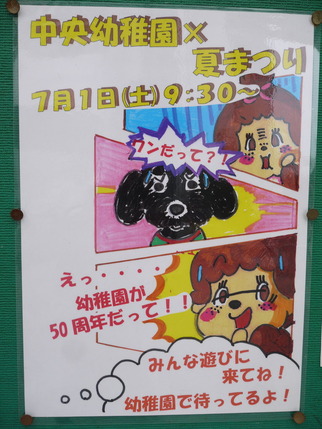 中央幼稚園×
夏まつり
7月1日(土)9:30～
ワンだって?!
えっ・・・・
幼稚園が
50周年だって!!
みんな遊びに
来てね!
幼稚園で待ってるよ!